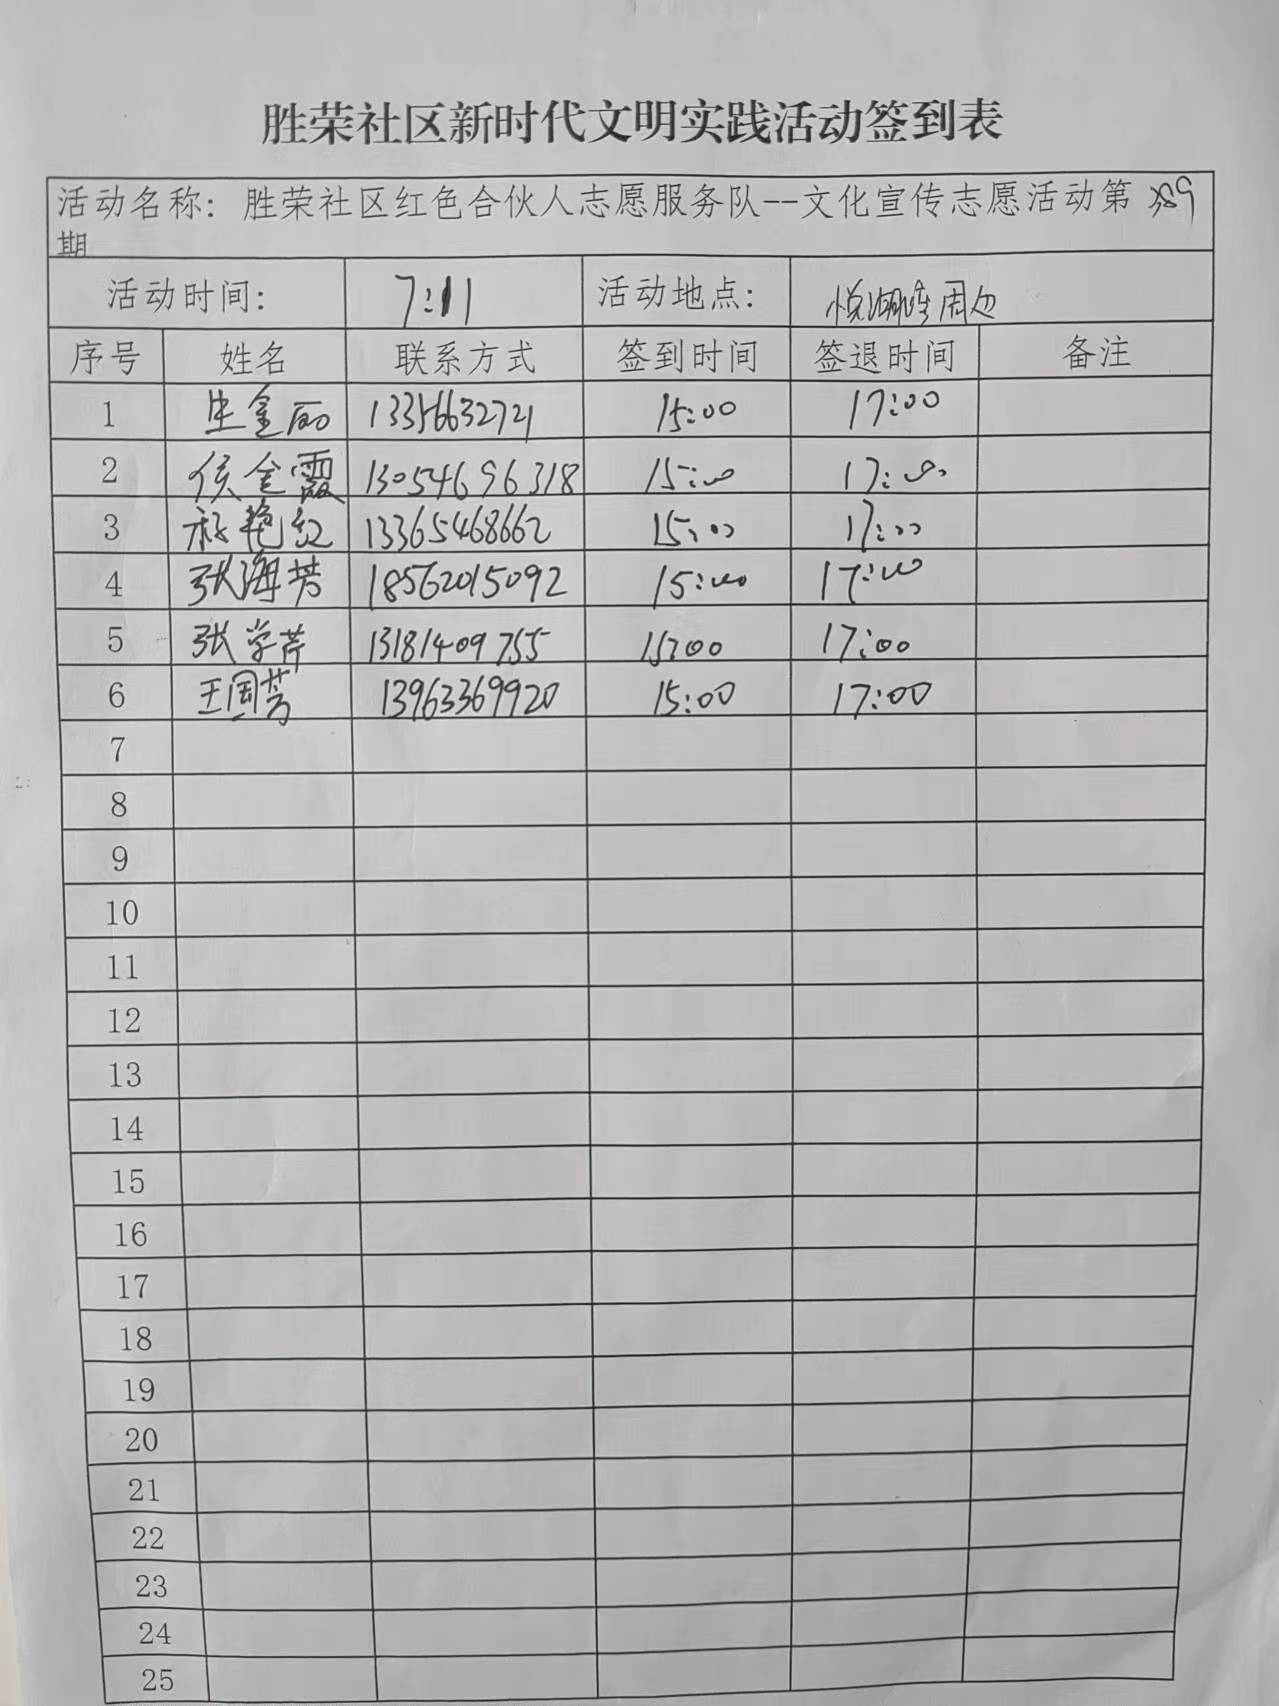 胜荣社区新时代文明实践活动签到表
活动名称：胜荣社区红色合伙人志愿服务队--文化宣传志愿活动第
期
活动时间： 7:11 活动地点： 周边
序号 姓名 联系方式 签到时间 签退时间 备注
1 生金丽 13356632721 15:00 17:00
2 侯金霞 13054696318 15:00 17:00
3 艳红 13365468662 15:00 17:00
4 张海芳 18562015092 15:00 17:00
5 张学芹 13181409755 15:00 17:00
6 王国芳 13963369920 15:00 17:00
7
8
9
10
11
12
13
14
15
16
17
18
19
20
21
22
23
24
25